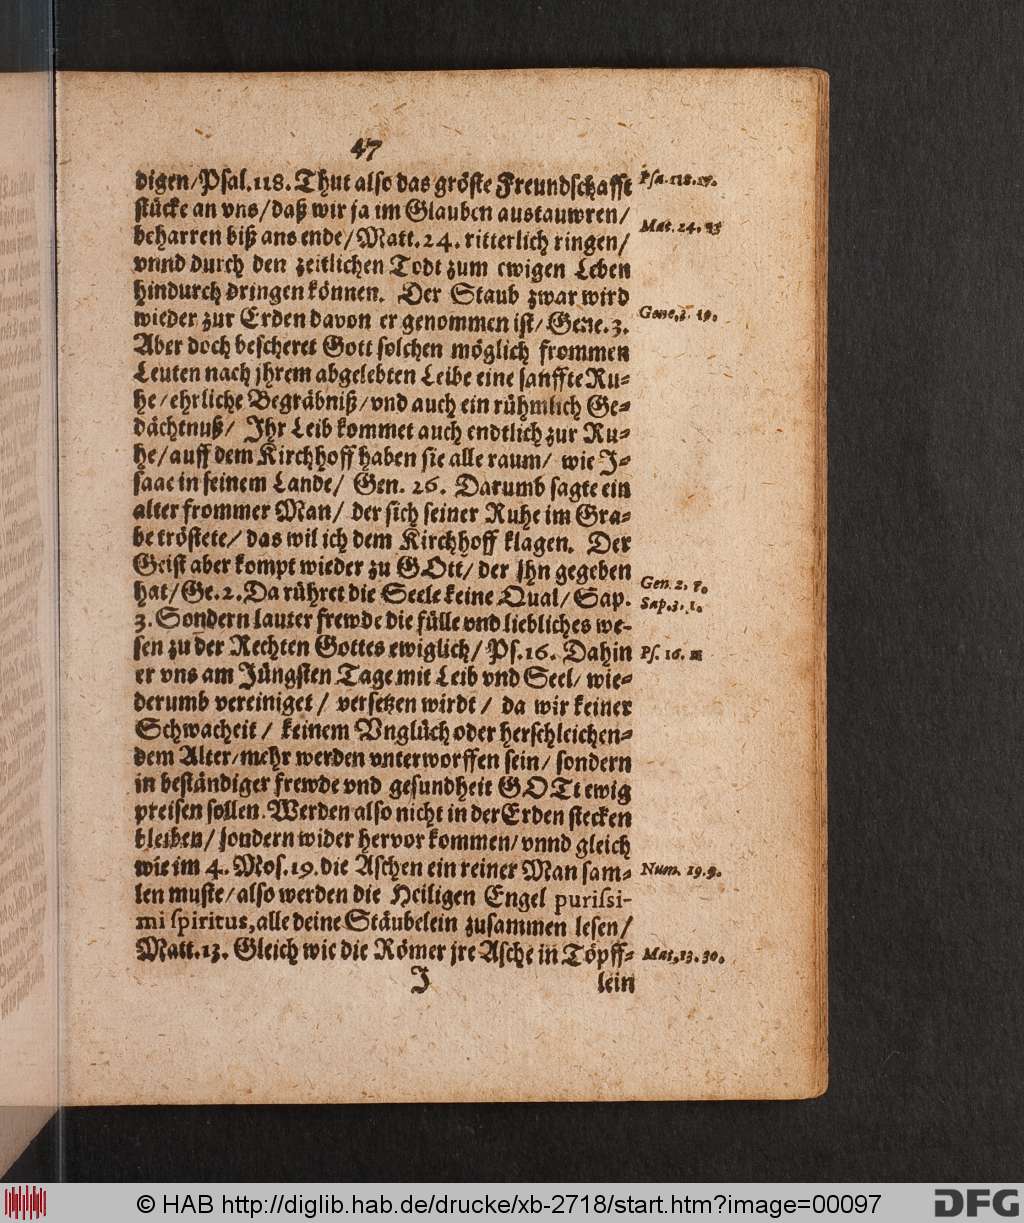 47
digen/Psal.118. Thut also das gröste Freundschafft
Psa.118.17.
stücke an vns/daß wir ja im Glauben austauwren/
Mat. 24. 13
beharren biß ans ende/Matt. 24. ritterlich ringen/
vnnd durch den zeitlichen Todt zum ewigen Leben
hindurch dringen können. Der Staub zwar wird
wieder zur Erden davon er genommen ist/ Gene. 3.
Gene,3. 19.
Aber doch bescheret Gott solchen möglich frommen
Leuten nach jhrem abgelebten Leibe eine sanffte Ru-
he/ehrliche Begräbniß/vnd auch ein rühmlich Ge-
dächtnuß/ Jhr Leib kommet auch endtlich zur Ru-
he/auff dem Kirchhoff haben sie alle raum/ wie J-
saac in seinem Lande/ Gen. 26. Darumb sagte ein
alter frommer Man/ der sich seiner Ruhe im Gra-
be tröstete/ das wil ich dem Kirchhoff klagen. Der
Geist aber kompt wieder zu GOtt/ der jhn gegeben
Gen. 2. 7.
hat/Ge.2. Da rühret die Seele keine Qual/ Sap.
Sap.3. 1.
3. Sondern lauter frewde die fülle vnd liebliches we-
sen zu der Rechten Gottes ewiglich/ Ps.16. Dahin
Ps. 16. 11
er vns am Jüngsten Tage mit Leib vnd Seel/ wie-
derumb vereiniget/ versetzen wirdt/ da wir keiner
Schwacheit/ keinem Vnglüch oder herschleichen-
dem Alter/mehr werden vnterworffen sein/ sondern
in beständiger frewde vnd gesundheit GOTt ewig
preisen sollen. Werden also nicht in der Erden stecken
bleiben/ sondern wider hervor kommen/ vnnd gleich
wie im 4. Mos.19. die Aschen ein reiner Man sam-
Num. 19.9.
len muste/also werden die Heiligen Engel purissi-
mi spiritus, alle deine Stäubelein zusammen lesen/
Matt.13. Gleich wie die Römer jre Asche in Töpff-
Mat,13.30.
J
lein
© HAB http://diglib.hab.de/drucke/xb-2718/start.htm?image=00097
DFG